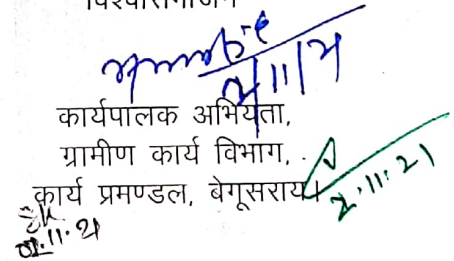 विश्वासभाजन
2/11/21
कार्यपालक अभियंता,
ग्रामीण कार्य विभाग,
कार्य प्रमण्डल, बेगूसराय।
2.11.21
02.11.21